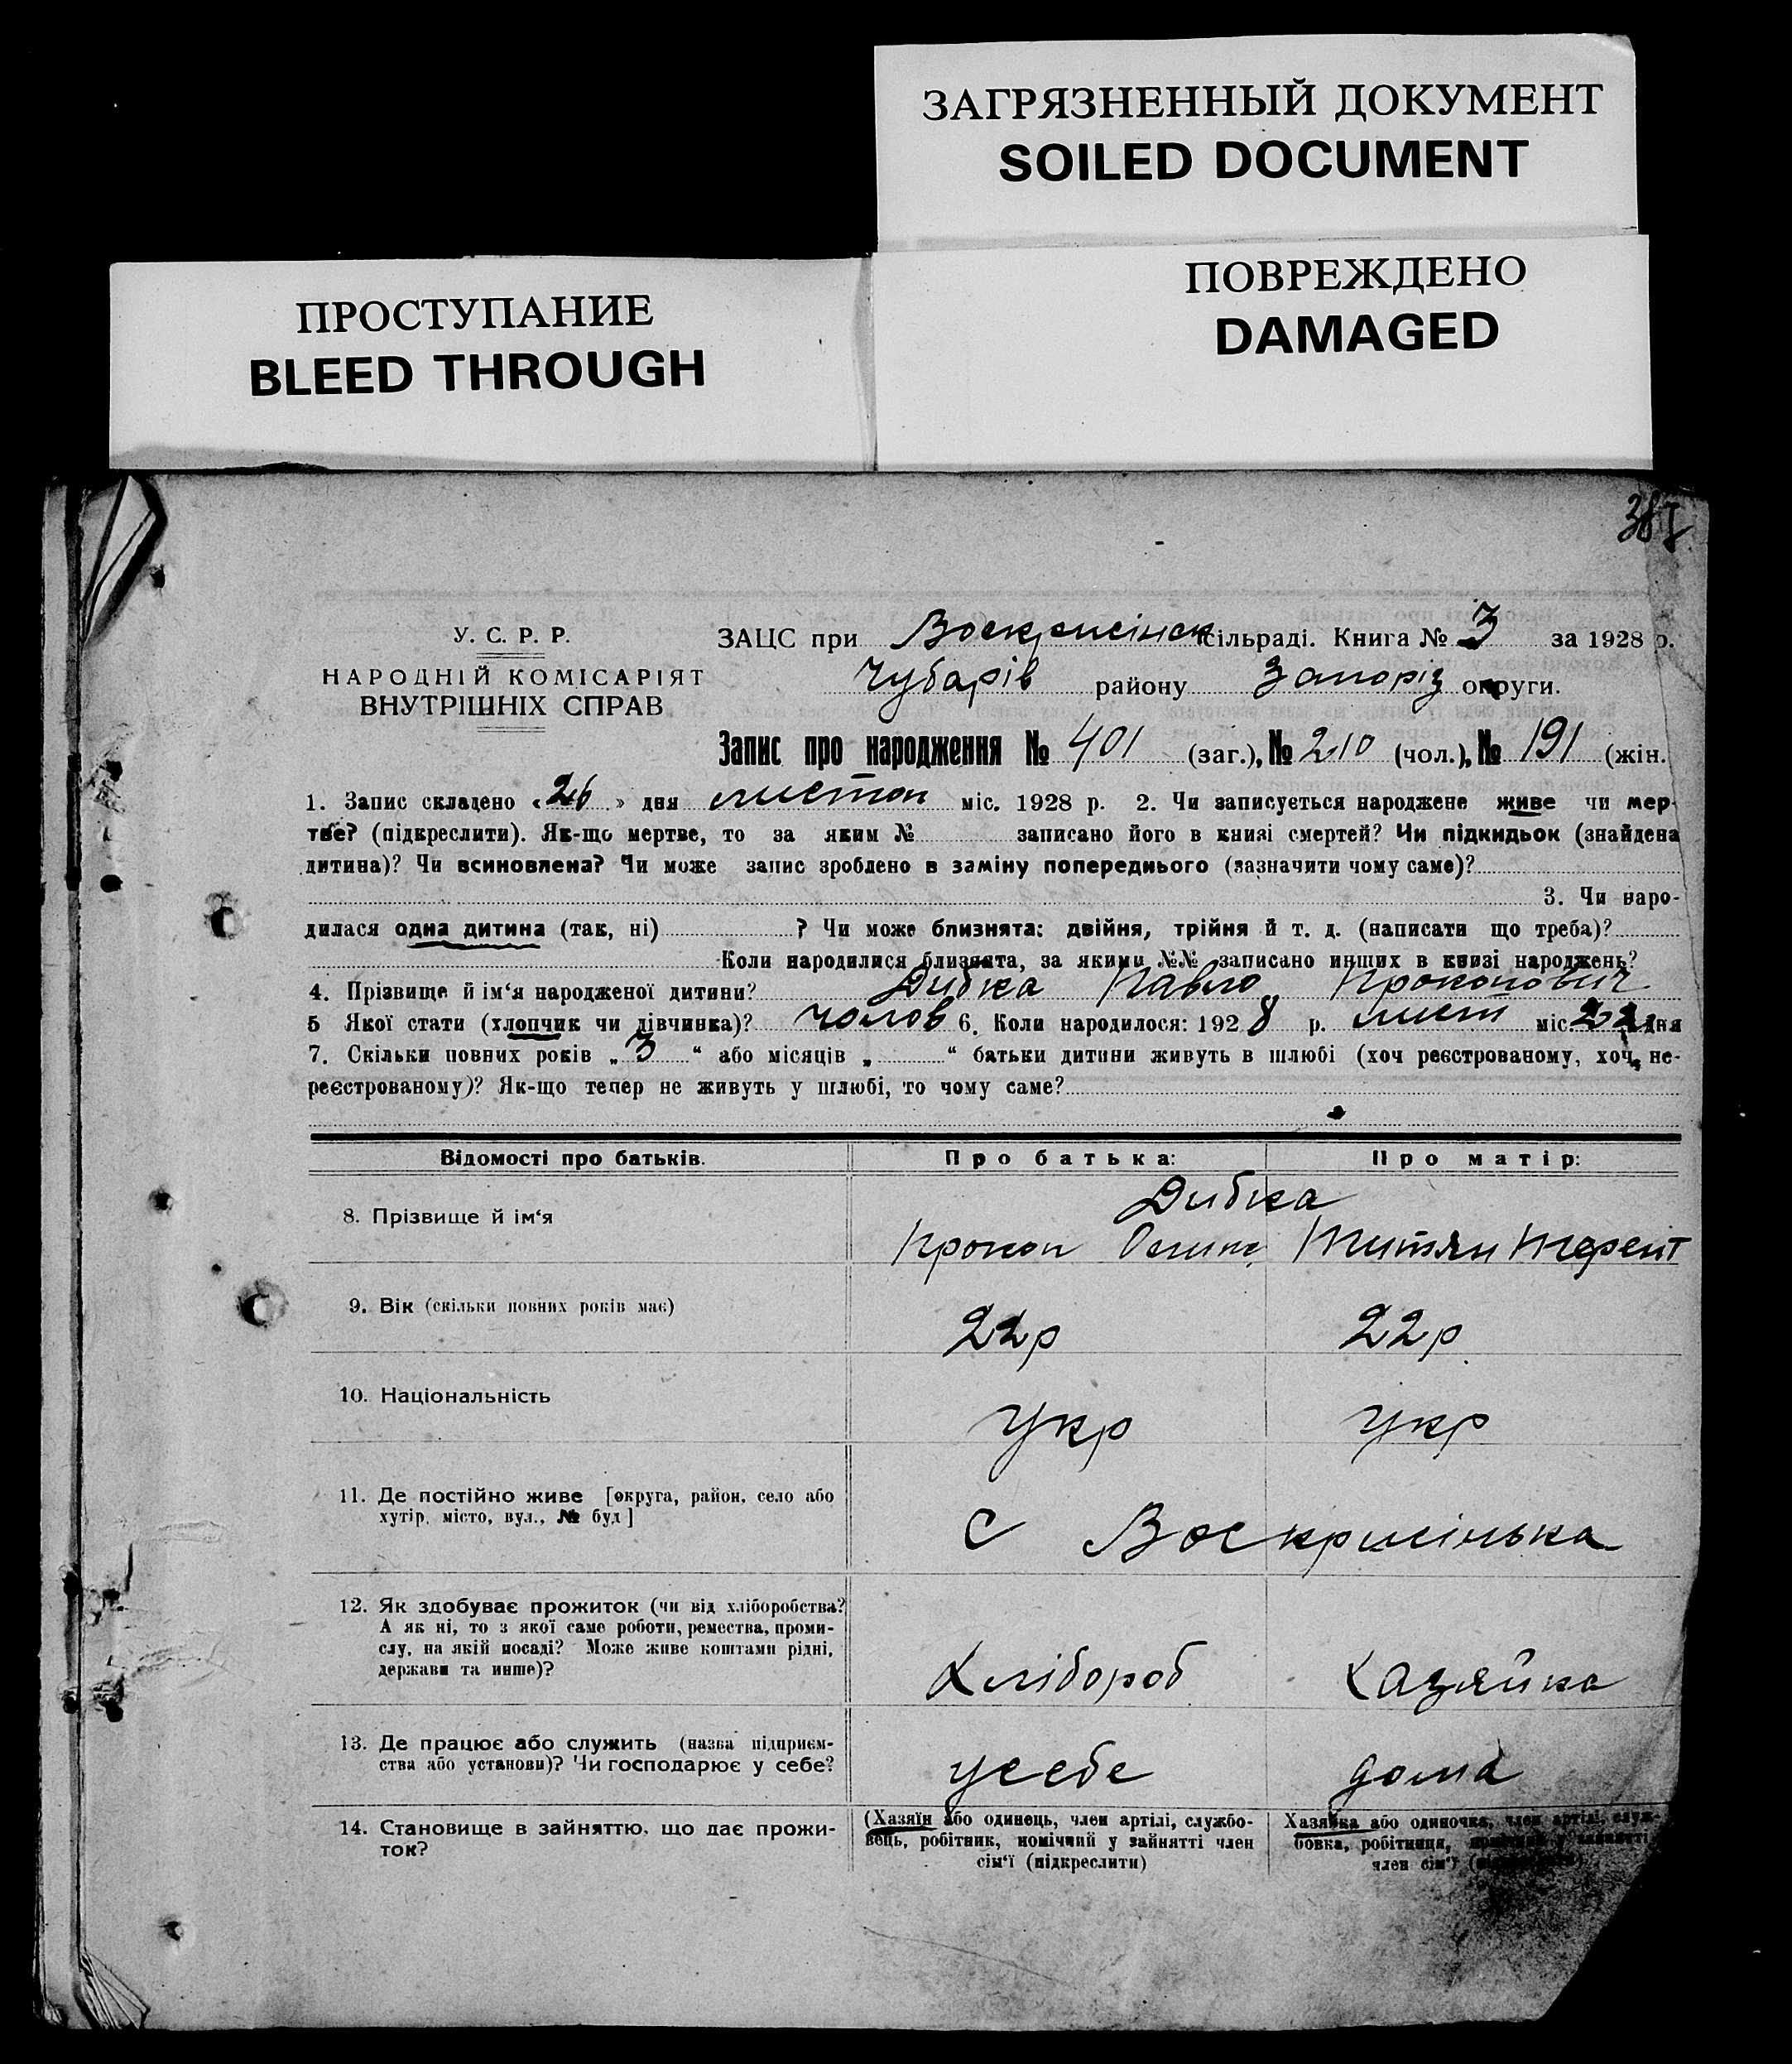 ЗАГРЯЗНЕННЫЙ ДОКУМЕНТ
SOILED DOCUMENT
ПРОСТУПАНИЕ
BLEED THROUGH
ПОВРЕЖДЕНО
DAMAGED
У. С. Р. Р.
НАРОДНІЙ КОМІСАРІЯТ
ВНУТРІШНІХ СПРАВ
ЗАЦС при Воскрисінск сільраді. Книга № 3 за 1928 р.
Чубарів району Запоріз округи.
Запис про народження № 401 (заг.), № 210 (чол.), № 191 (жін.
1. Запис складено «26» дня листоп міс. 1928 р. 2. Чи записується народжене живе чи мер-
тве? (підкреслити). Як-що мертве, то за яким № записано його в книзі смертей? Чи підкидьок (знайдена
дитина)? Чи всиновлена? Чи може запис зроблено в заміну попереднього (зазначити чому саме)?
3. Чи наро-
дилася одна дитина (так, ні) ? Чи може близнята: двійня, трійня й т. д. (написати що треба)?
Коли народилися близнята, за якими №№ записано инших в книзі народжень?
4. Прізвище й ім‘я народженої дитини? Дибка Павло Прокопович
5 Якої стати (хлопчик чи дівчинка)? чолов 6. Коли народилося: 1928 р. лист міс. 22 дня
7. Скільки повних років „ 3 “ або місяців „ “ батьки дитини живуть в шлюбі (хоч реєстрованому, хоч не-
реєстрованому)? Як-що тепер не живуть у шлюбі, то чому саме?
Відомості про батьків. Про батька: Про матір:
Дибка
8. Прізвище й ім‘я Прокоп Осип Титян Терент
9. Вік (скільки повних років має) 22р 22р
10. Національність Укр Укр
11. Де постійно живе [округа, район, село або
хутір, місто, вул., № буд] С Воскрисінька
12. Як здобуває прожиток (чи від хліборобства?
А як ні, то з якої саме роботи, ремества, проми-
слу, на якій посаді? Може живе коштами рідні,
держави та инше)? Хлібороб Хазяйка
13. Де працює або служить (назва підприєм-
ства або установи)? Чи господарює у себе? усебе дома
14. Становище в зайняттю, що дає прожи-
ток?
(Хазяїн або одинець, член артілі, службо-
вець, робітник, помічний у зайнятті член
сім‘ї (підкреслити)
Хазяйка або одиночка, член артілі, служ-
бовка, робітниця, у зайнятті
член сім‘ї